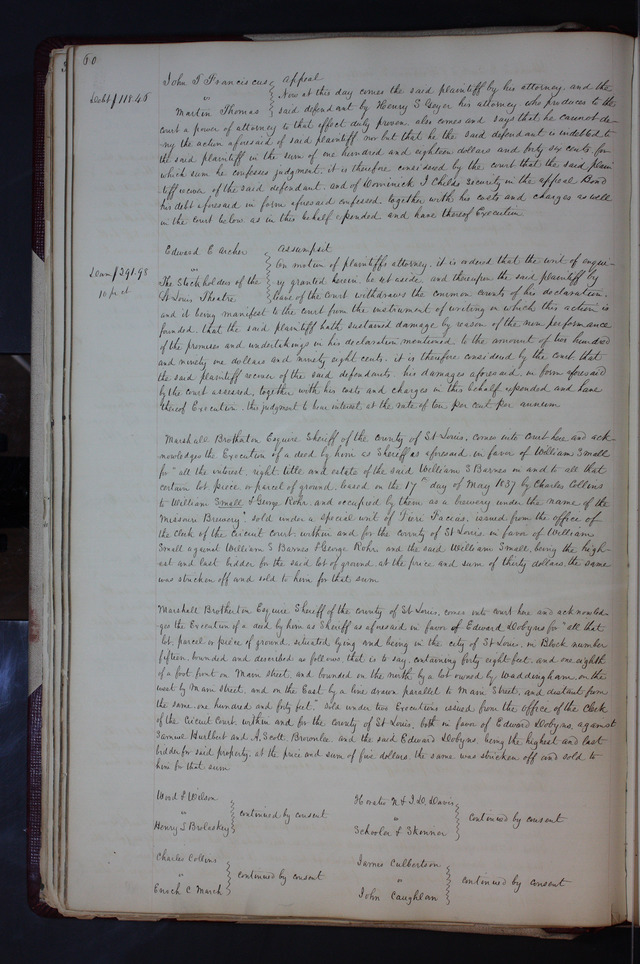 60
John F Franciscus } Appeal
Debt $118.46
" } Now at this day comes the said plaintiff by his attorney, and the
Martin Thomas } said defendant by Henry S Geyer his attorney who produces to the
court a power of attorney to that effect duly proven also comes and says that he cannot de-
ny the action aforesaid of said plaintiff nor but that he the said defendant is indebted to
the said plaintiff in the sum of one hundred and eighteen dollars and forty six cents, for
which sum he confesses judgment, it is therefore considered by the court that the said plain
tiff recover of the said defendant, and of Dominick J Childs security in the appeal Bond
his debt aforesaid in form aforesaid confessed together with his costs and charges as well
in the court below as in this behalf expended and have thereof Execution
Edward C Archer } Assumpsit
Dam $291.98
" } On motion of plaintiffs attorney, it is ordered that the writ of enqui-
The Stockholders of the } ry granted herein, be set aside, and thereupon the said plaintiff by
10 pr ct
St Louis Theatre } leave of the Court withdraws the common counts of his declaration,
and it being manifest to the court from the instrument of writing on which this action is
founded, that the said plaintiff hath sustained damage by reason of the non performance
of the promises and undertakings in his declaration mentioned to the amount of two hundred
and ninety one dollars and ninety eight cents. it is therefore considered by the court that
the said plaintiff recover of the said defendants his damages aforesaid in form aforesaid
by the court assessed, together with his costs and charges in this behalf expended and have
thereof Execution, the judgment to bear interest at the rate of ten per cent per annum
Marshall Brotherton Esquire Sheriff of the county of St Louis, comes into court here and ack
nowledges the Execution of a deed by him as Sheriff as aforesaid, in favor of William Small
for "all the interest, right title and estate of the said William S Barnes in and to all that
certain lot piece or parcel of ground, leased on the 17th day of May 1837 by Charles Collins
to William Small & George Rohr, and occupied by them as a brewery under the name of the
Missouri Brewery", sold under a special writ of Fieri Facias, issued from the office of
the Clerk of the circuit court, within and for the county of St Louis in favor of William
Small against William S Barnes & George Rohr, and the said William Small, being the high-
est and last bidder for the said lot of ground, at the price and sum of thirty dollars, the same
was stricken off and sold to him for that sum
Marshall Brotherton Esquire Sheriff of the county of St Louis, comes into court here and acknowled-
ges the Execution of a deed by him as Sheriff as aforesaid in favor of Edward Dobyns for "all that
lot, parcel or piece of ground, situated lying and being in the city of St Louis, in Block number
fifteen, bounded and described as follows, that is to say, containing forty eight feet, and one eighth
of a foot front on Main street, and bounded on the north by a lot owned by Waddingham, on the
west by Main street, and on the East by a line drawn parallel to Main Street, and distant from
the same one hundred and forty feet." Sold under two Executions issued from the office of the Clerk
of the Circuit Court, within and for the county of St Louis, both in favor of Edward Dobyns, against
Samuel Hurlbert and A. Scott Brownlee, and the said Edward Dobyns, being the highest and last
bidder for said property, at the price and sum of five dollars, the same was stricken off and sold to
him for that sum
Wood & Wilson
" } continued by consent
Henry S Broleskey
Horatio N & J D Davis
" } continued by consent
Schooler & Skonnor
Charles Collins
" } continued by consent
Enoch C March
James Culbertson
" } continued by consent
John Caughlan